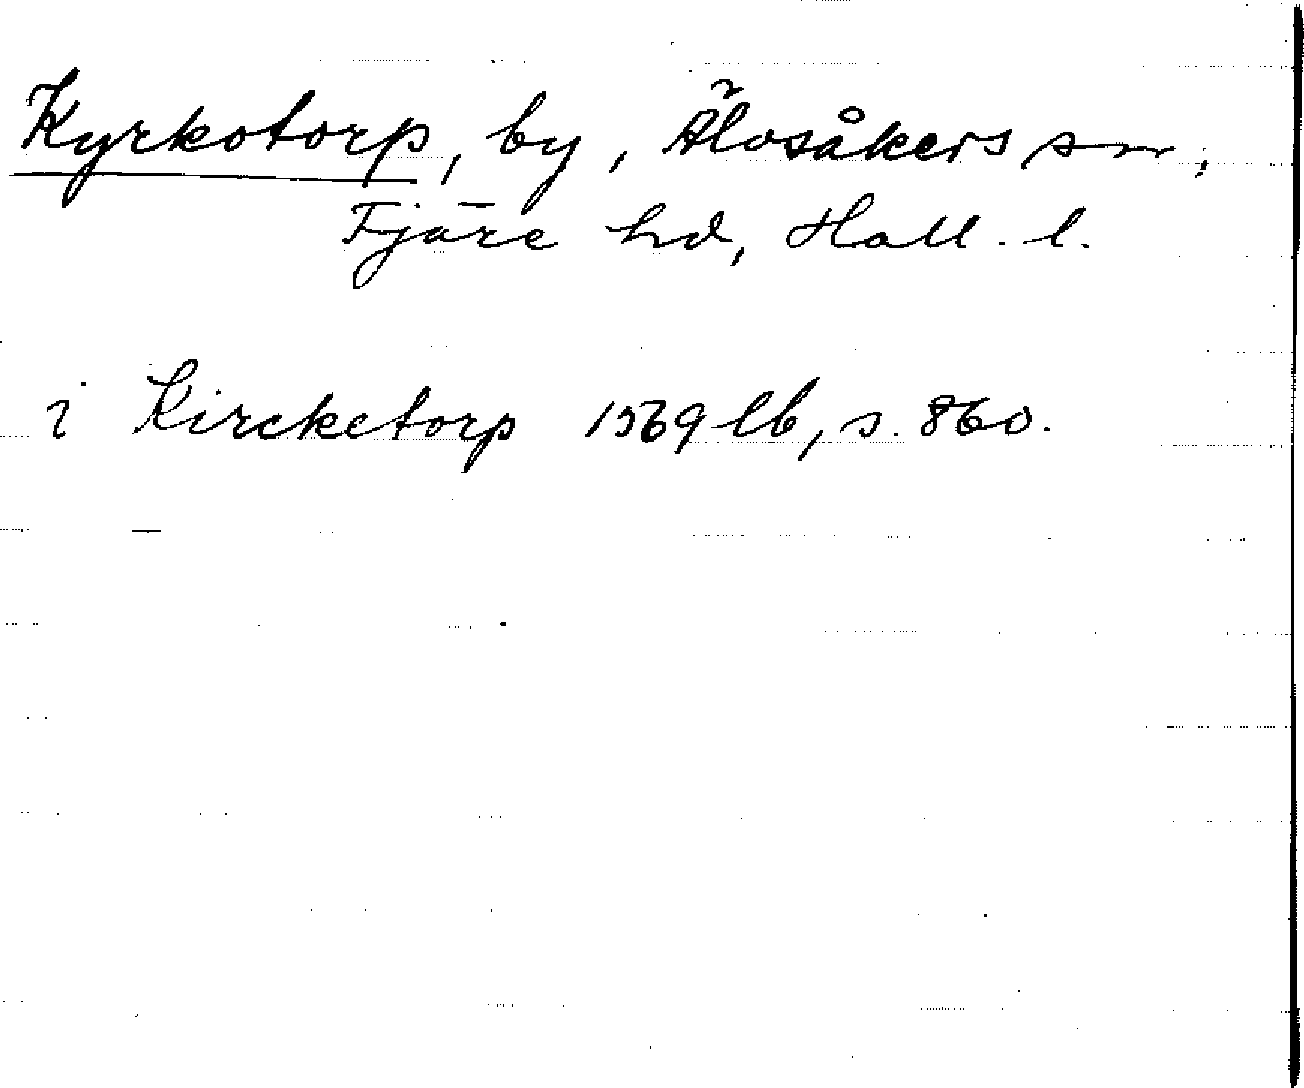 Kyrkotorp, by, Älvsåkers sn,
Fjäre hd, Hall. l.
i Kircketorp 1569 lb, s. 860.